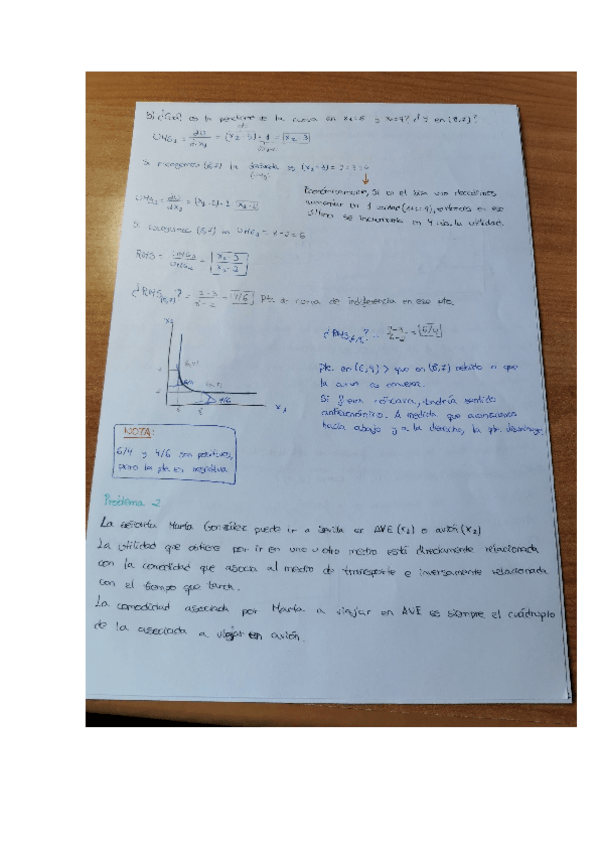 b) ¿Cuál es la pendiente de la curva en x₁=6 y x₂=9? ¿Y en (8,7)?
UMG₁ = dU/dx₁ = (x₂-3)·1 = x₂-3
Si tenemos (8,7) la derivada es (x₂-3) = 7-3 = 4
(UMg₁)
Económicamente, si es el bien uno decidimos
aumentar en 1 unidad, entonces en ese
último se incrementa en 4 uds. la utilidad.
UMG₂ = dU/dx₂ = (x₁-2)·1 x₁-2
Si tenemos (8,7) → UMG₂ = 8-2 = 6
RMS = UMG₁/UMG₂ = x₂-3/x₁-2
¿RMS(8,7)? = 7-3/8-2 = 4/6 pte. de curva de indiferencia en ese pto.
¿RMS(6,9)? = 9-3/6-2 = 6/4
x₂
x₁
6
8
4/6
pte. en (6,9) > que en (8,7) debido a que
la curva es convexa.
Si fuera cóncava, tendría sentido
antieconómico. A medida que avanzamos
hacia abajo y a la derecha, la pte. disminuye.
NOTA:
6/4 y 4/6 son positivos,
pero la pte. es negativa
Problema 2
La señorita Marta González puede ir a Sevilla en AVE (x₁) o avión (x₂)
La utilidad que obtiene por ir en uno u otro medio está directamente relacionada
con la comodidad que asocia al medio de transporte e inversamente relacionada
con el tiempo que tarda.
La comodidad asociada por Marta a viajar en AVE es siempre el cuádruplo
de la asociada a viajar en avión.